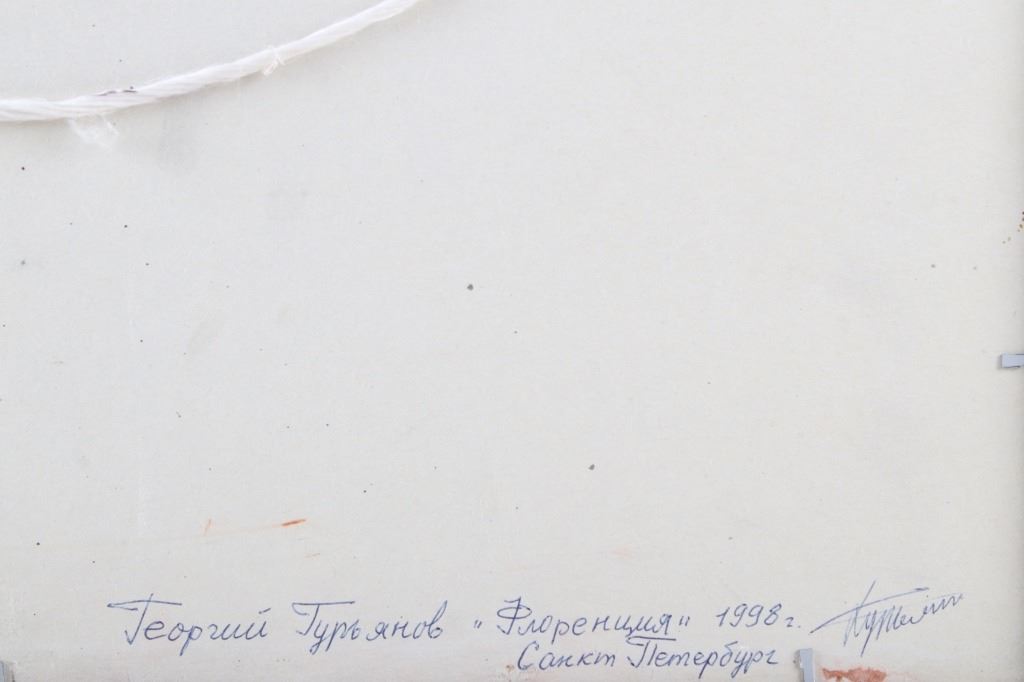 Георгий Гурьянов "Флоренция" 1998 г.
Санкт Петербург